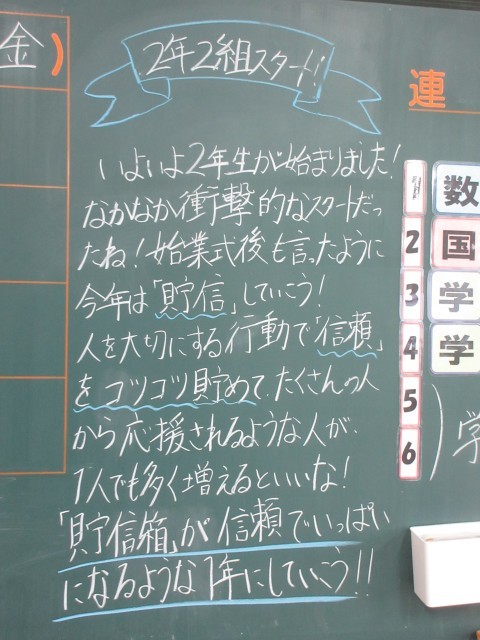 金)
2年2組スタート!!
連
いよいよ2年生が始まりました!
なかなか衝撃的なスタートだっ
たね!始業式後も言ったように
今年は「貯信」していこう!
人を大切にする行動で「信頼」
をコツコツ貯めて、たくさんの人
から応援されるような人が、
1人でも多く増えるといいな!
「貯信箱」が信頼でいっぱい
になるような1年にしていこう!!
1 数
2 国
3 学
4 学
5
6
)学